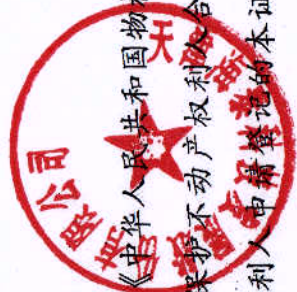 《中华人民共和国物权
保护不动产权利人合
利人申请登记的本证
天
有限公司